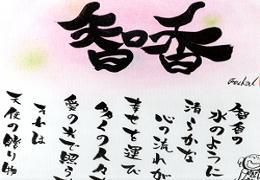 智香
智香の
水のように
清らかな
心の流れが
幸せを運び
多くの人々を
愛の光で照らす
天使の贈り物